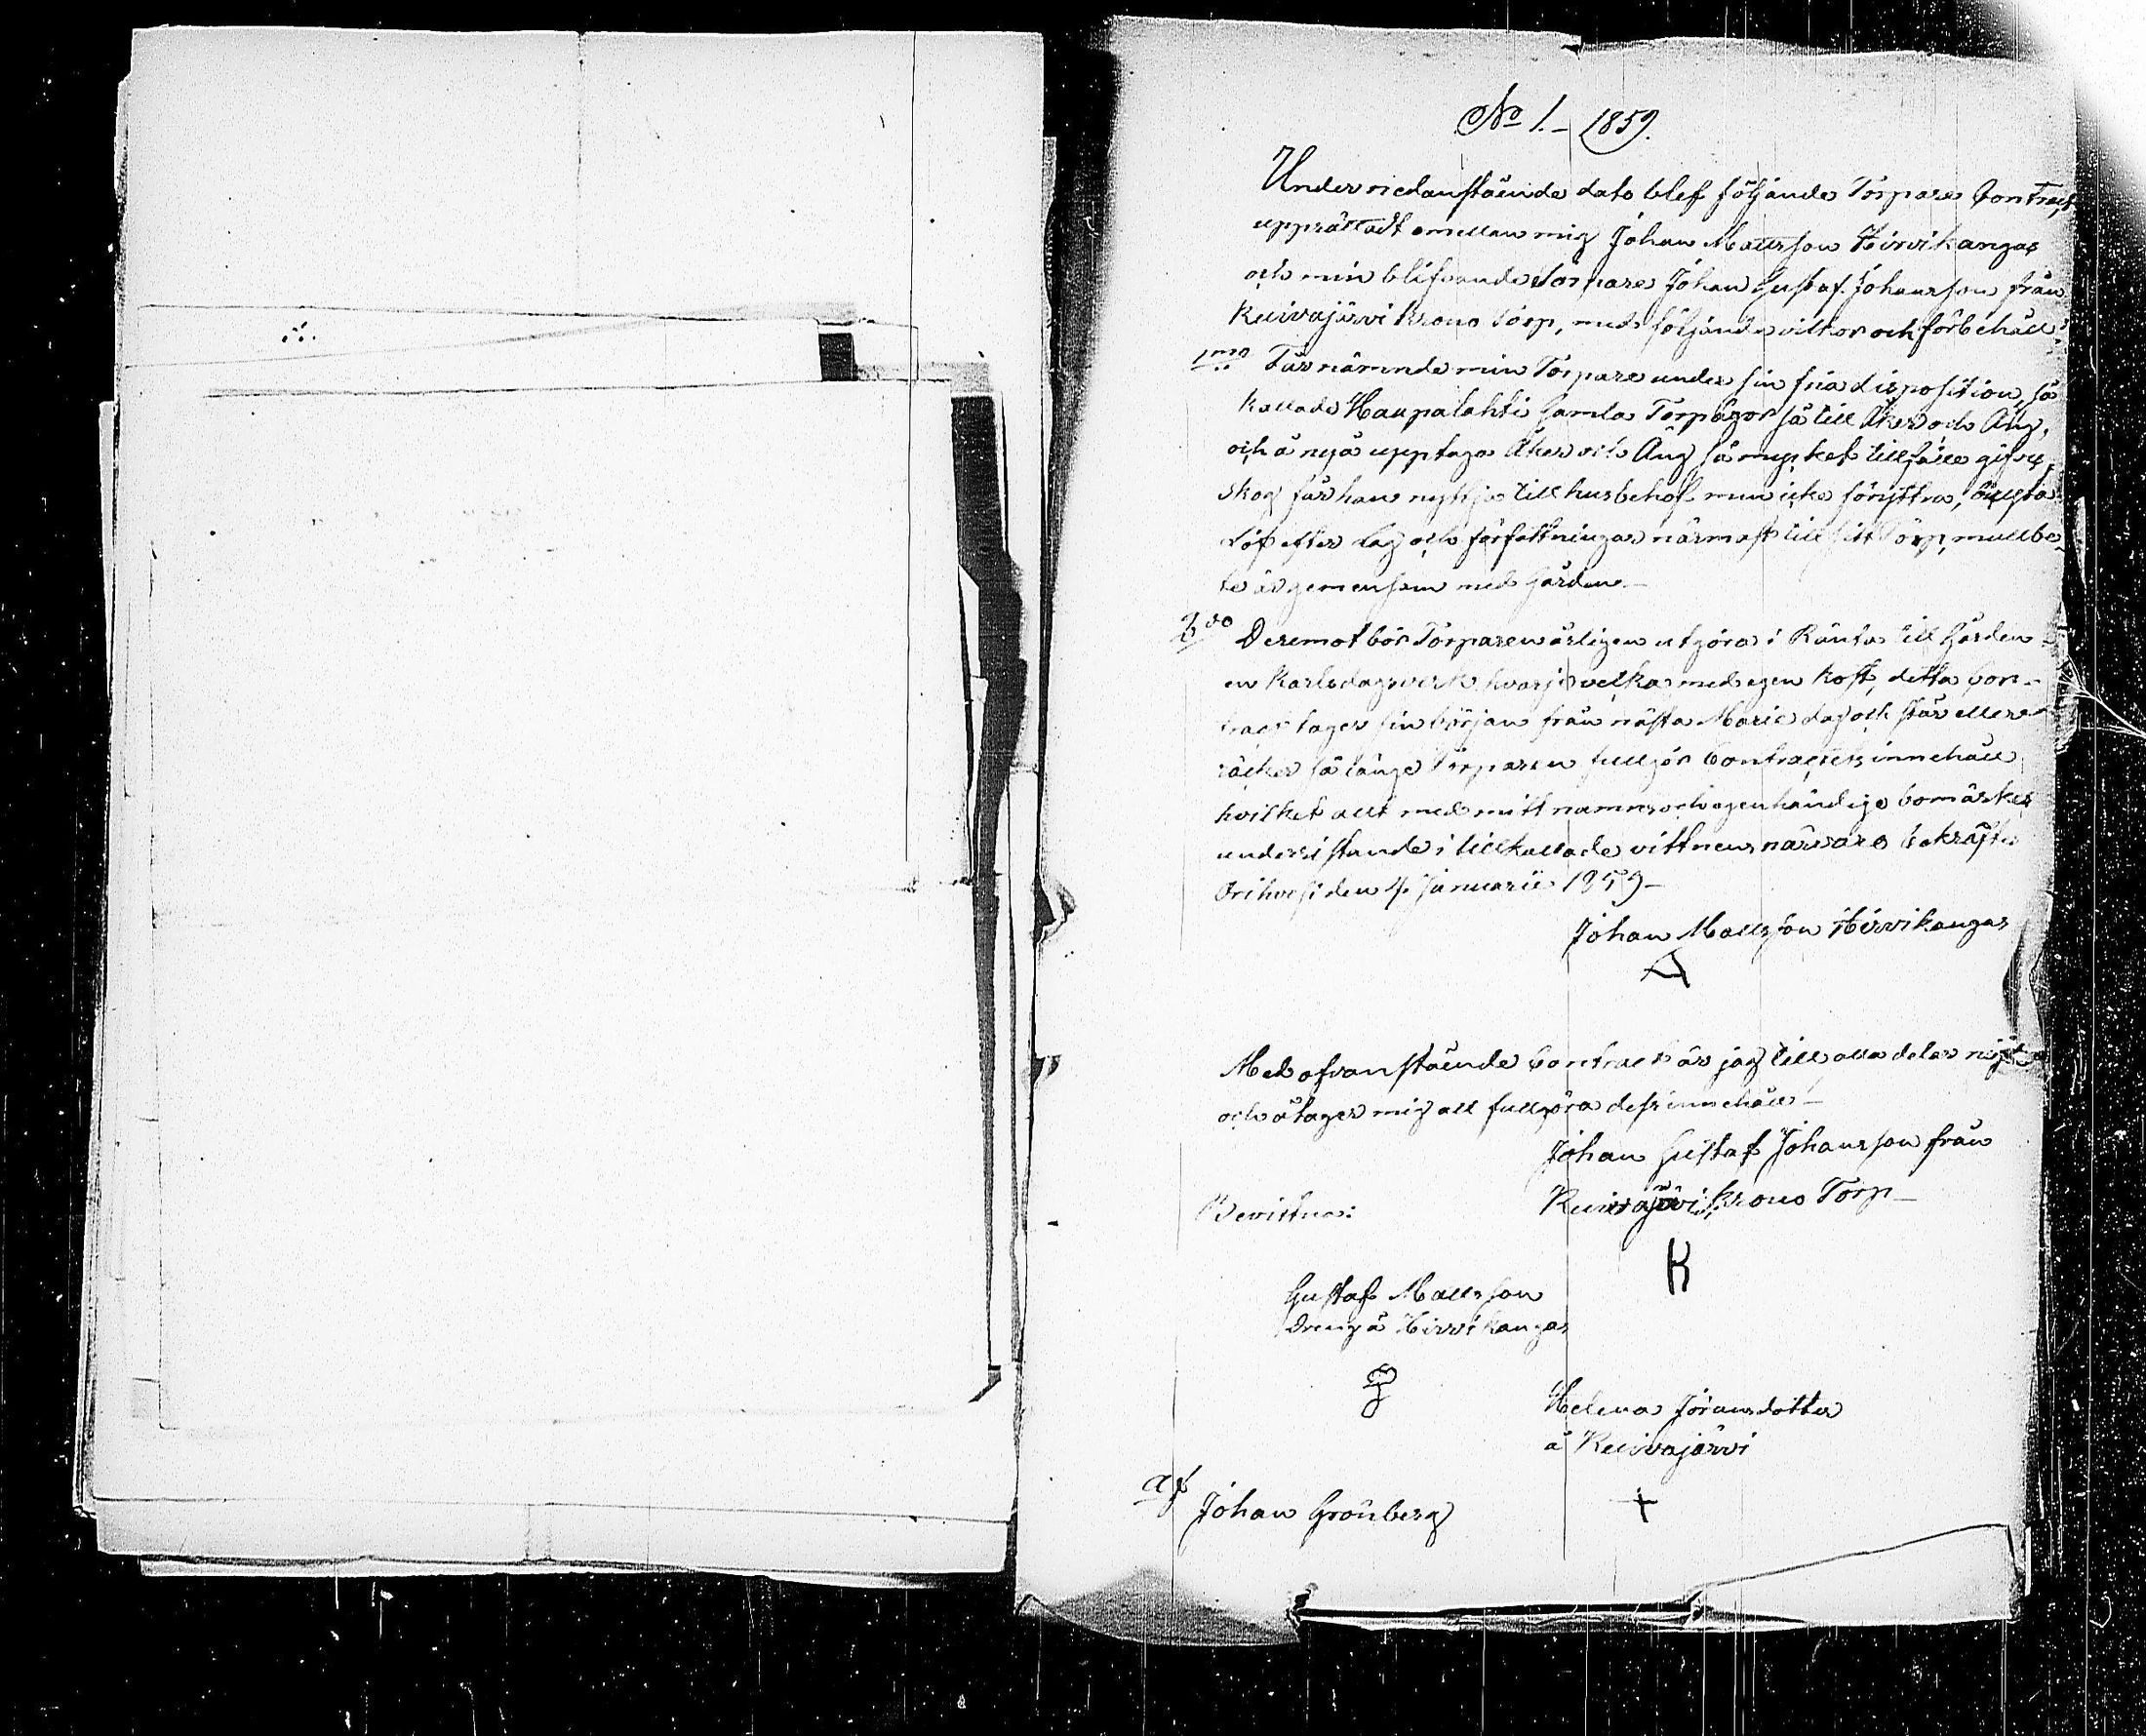 No 1. – 1859.
Under nedanstående dato blef följande Torpare Contract
upprättadt emellan mig Johan Mattsson Hirvikangas
och min blifvande Torpare Johan Gustaf Johansson från
Kuivajärvi Krono Torp, med följande vilkor och förbehåll:
1mo Får nämnde min Torpare under sin fria disposition, så
kallade Haapalahti gamla Torpägor så till Åker och Äng,
och å nyo upptaga Åker och Äng så mycket tillfälle gifves,
skog får han nyttja till husbehof men icke föryttra,
löf efter Lag och författningar närmast till sitt Torp, mullbe-
te är gemensam med Gården –
2do Deremot bör Torparen årligen utgöra i Ränta till Gården
en Karlsdagsverk hvarje vecka med egen kost, detta Con-
tract tager sin början från nästa Marie dag och står eller
räcker så länge Torparen fullgör Contractets innehåll,
hvilket allt med mitt namns och egenhändiga bomärkes
undersistande i tillkallade vittnens närvaro bekräftas
Orihvesi den 4 Januarii 1859 –
Johan Mattsson Hirvikangas
Med ofvanstående Contract är jag till alla delar nöjd
och åtager mig att fullgöra dess innehåll –
Johan Gustaf Johansson från
Kuivajärvi Krono Torp –
Bevittna:
K
Gustaf Mattsson
Dreng å Hirvikangas
Helena Göransdotter
å Kuivajärvi
af Johan Grönberg